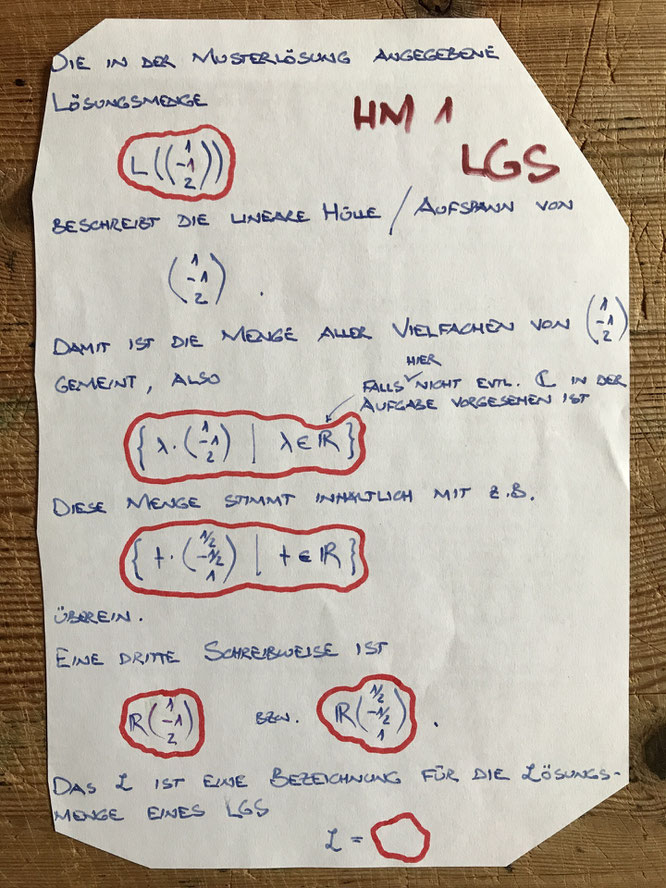 DIE IN DER MUSTERLÖSUNG ANGEGEBENE
LÖSUNGSMENGE
HM 1
LGS
L((1 -1 2))
BESCHREIBT DIE LINEARE HÜLLE / AUFSPANN VON
(1 -1 2) .
DAMIT IST DIE MENGE ALLER VIELFACHEN VON (1 -1 2)
GEMEINT, ALSO
FALLS HIER NICHT EVTL. ℂ IN DER
AUFGABE VORGESEHEN IST
{ λ · (1 -1 2) | λ ∈ ℝ }
DIESE MENGE STIMMT INHALTLICH MIT Z.B.
{ t · (1/2 -1/2 1) | t ∈ ℝ }
ÜBEREIN.
EINE DRITTE SCHREIBWEISE IST
ℝ(1 -1 2) BZW. ℝ(1/2 -1/2 1) .
DAS ℒ IST EINE BEZEICHNUNG FÜR DIE LÖSUNGS-
MENGE EINES LGS
ℒ =